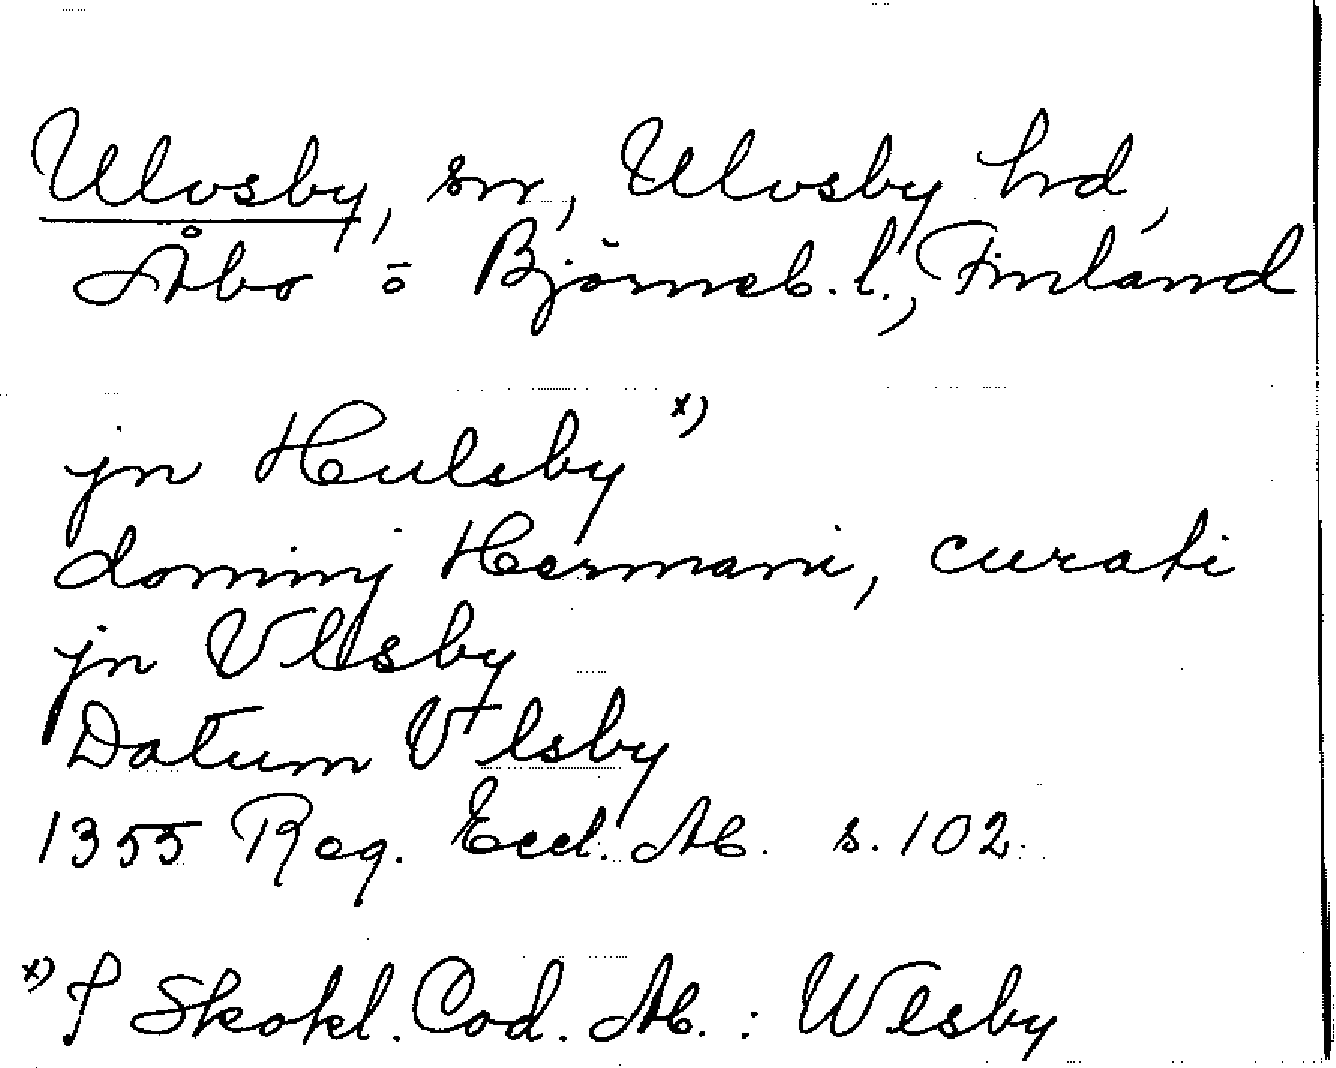 Ulvsby, sn, Ulvsby hd,
Åbo o Björneb. l., Finland
jn Hulsby x)
dominj Hermani, curati
jn Vlsby
Datum Vlsby
1355 Reg. Eccl. Ab. s. 102.
x) I Skokl. Cod. Ab. : Wlsby